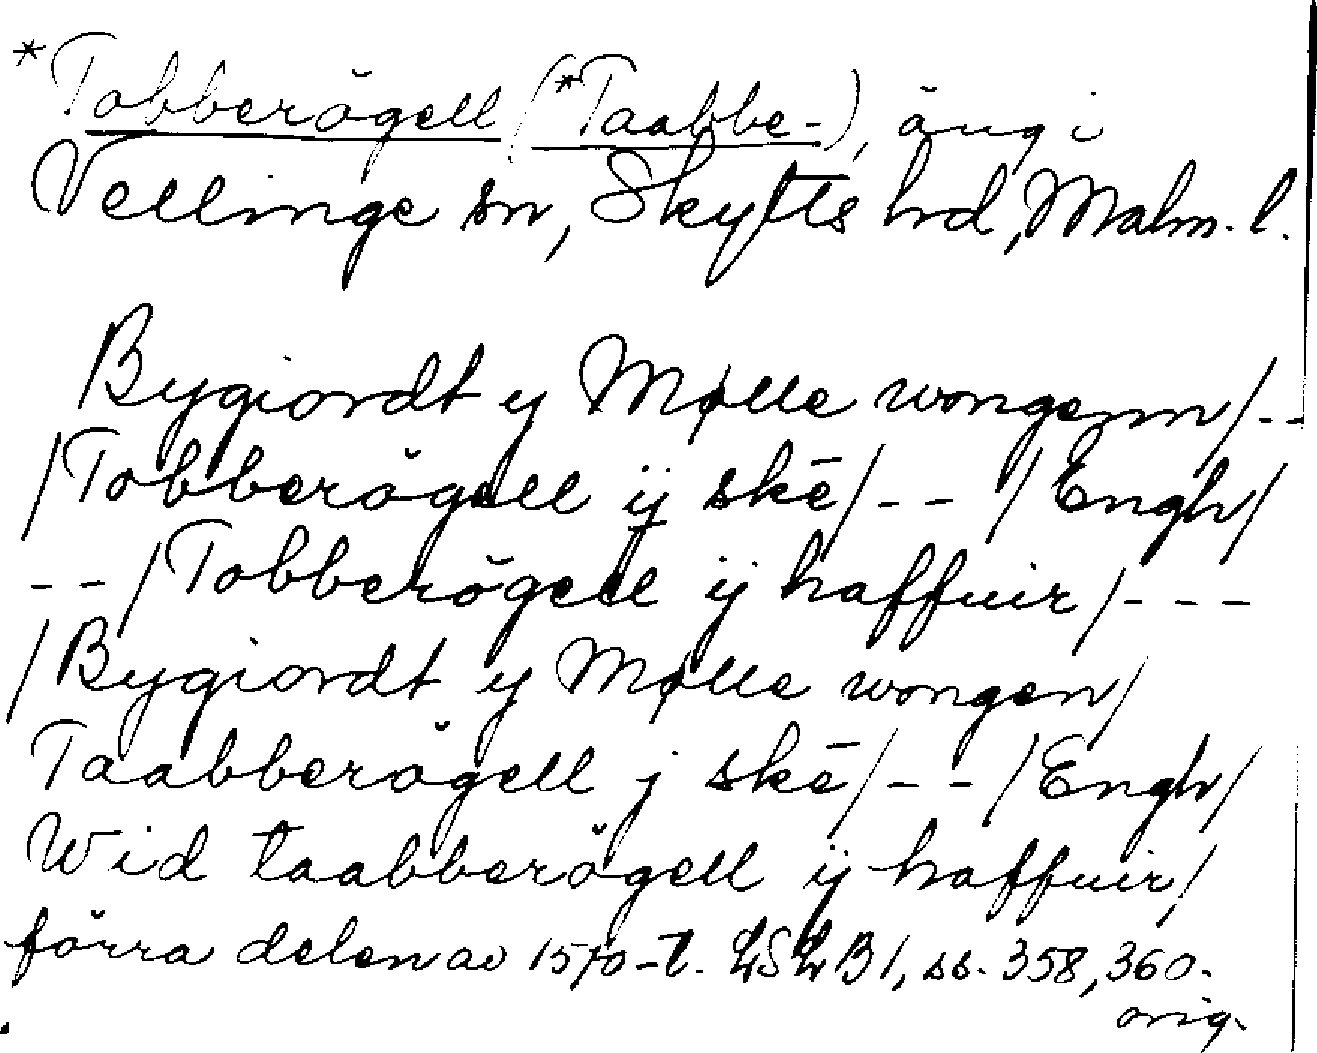 *Tobberögell (*Taabbe-), äng i
Vellinge sn, Skytts hrd, Malm. l.
Bygiordt y Mølle wongenn/--
/Tobberögell ij skē/-- /Engh/
--/Tobberögell ij haffuir/---
/Bygiordt y Mølle wongen/
Taabberögell j skē/--/Engh/
Wid taabberögell ij haffuir/
förra delen av 1570-t. LSLB1, ss. 358, 360.
orig.